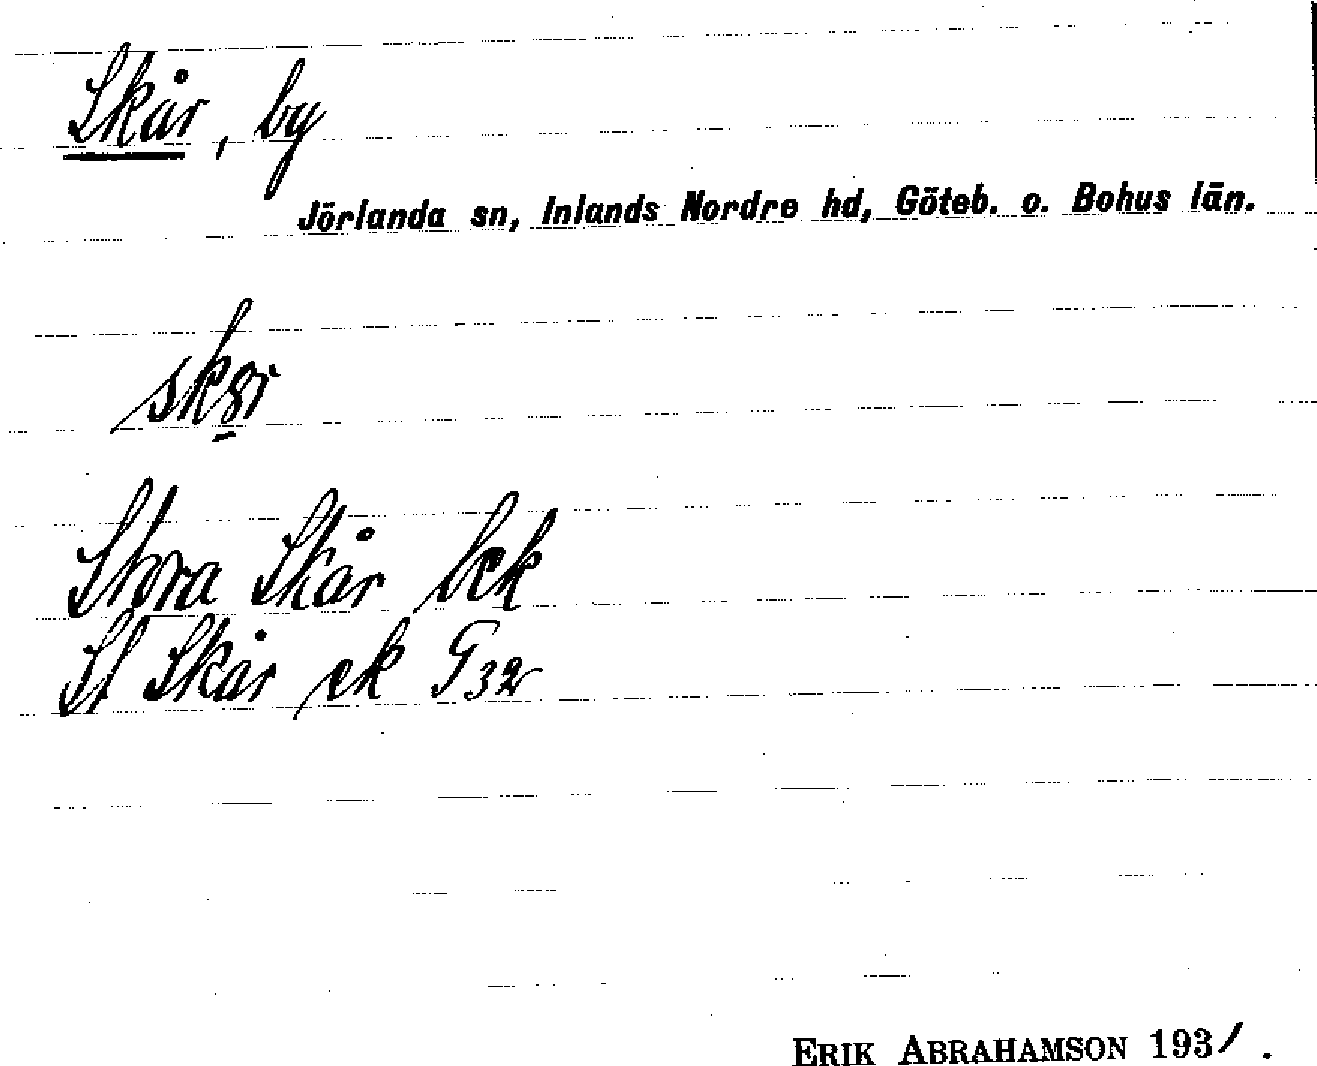 Skår, by
Jörlanda sn, Inlands Nordre hd, Göteb. o. Bohus län.
Stora Skår bek
St Skår ek G 32
ERIK ABRAHAMSON 1931.